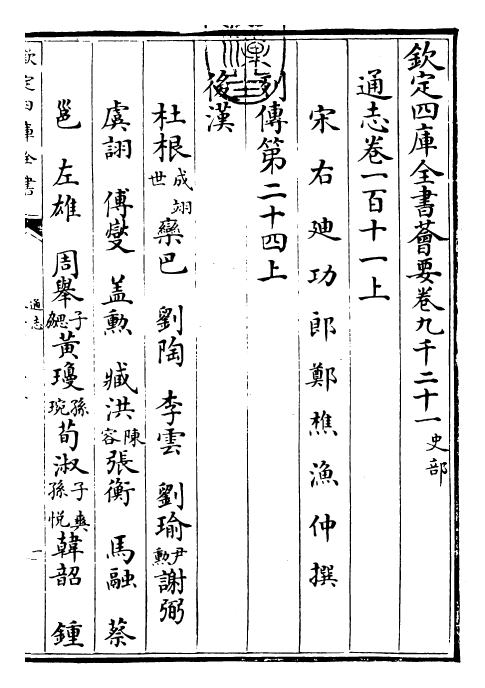 欽定四庫全書薈要卷九千二十一 史部
通志卷一百十一上
宋右廸功郎鄭樵漁仲撰
列傳第二十四上
後漢
杜根 成翊世 欒巴 劉陶 李雲 劉瑜 尹勲 謝弼
虞詡 傅燮 蓋勲 臧洪 陳容 張衡 馬融 蔡
邕 左雄 周舉 子勰 黄瓊 孫琬 荀淑 子爽 孫悦 韓韶 鍾
欽定四庫全書
通志
一